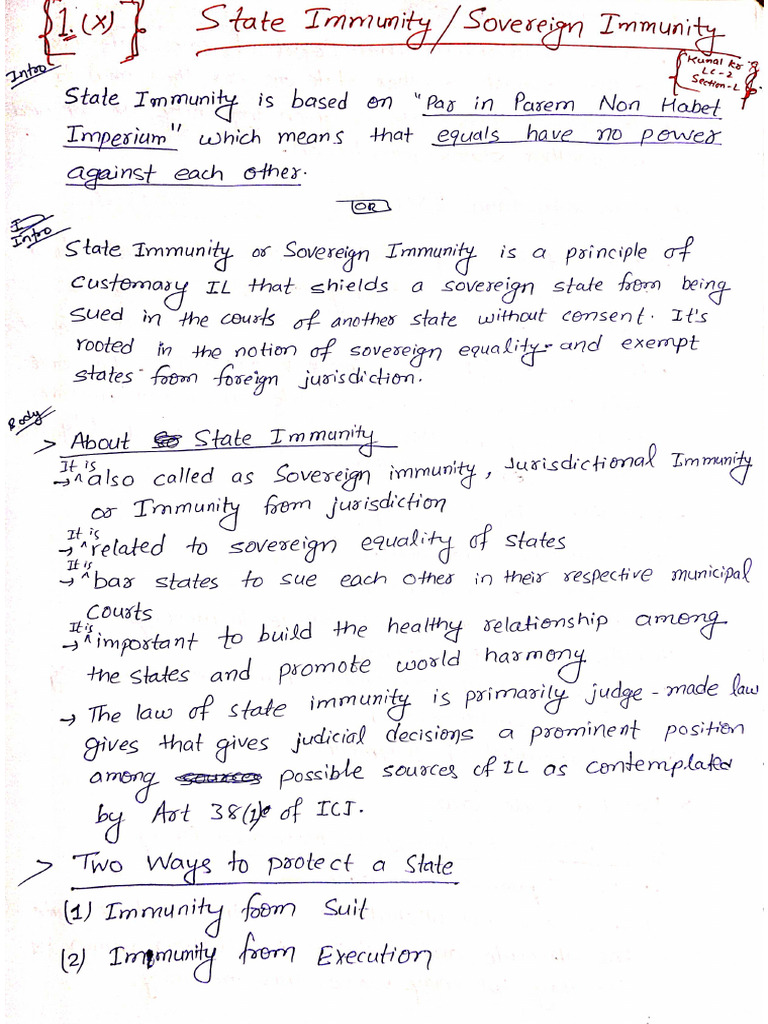 1. (x)
State Immunity / Sovereign Immunity
Kunal Kr
LC-2
Section-L
Intro
State Immunity is based on "Par in Parem Non Habet
Imperium" which means that equals have no power
against each other.
OR
Intro
State Immunity or Sovereign Immunity is a principle of
customary IL that shields a sovereign state from being
sued in the courts of another state without consent. It's
rooted in the notion of sovereign equality and exempt
states from foreign jurisdiction.
Body
> About State Immunity
→ It is also called as Sovereign immunity, Jurisdictional Immunity
or Immunity from jurisdiction
→ It is related to sovereign equality of states
→ It is bar states to sue each other in their respective municipal
courts
→ It is important to build the healthy relationship among
the states and promote world harmony
→ The law of state immunity is primarily judge-made law
gives that gives judicial decisions a prominent position
among possible sources of IL as contemplated
by Art 38(1) of ICJ.
> Two Ways to protect a State
(1) Immunity from Suit
(2) Immunity from Execution